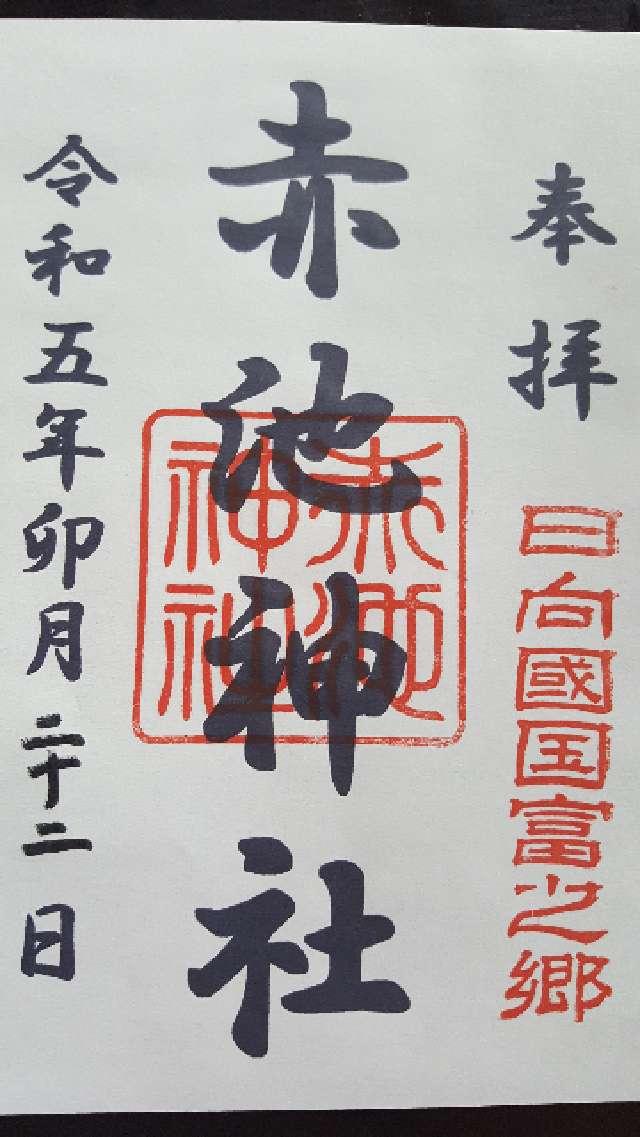 奉拝
日向國国富之郷
赤池神社
赤池
神社
令和五年卯月二十二日